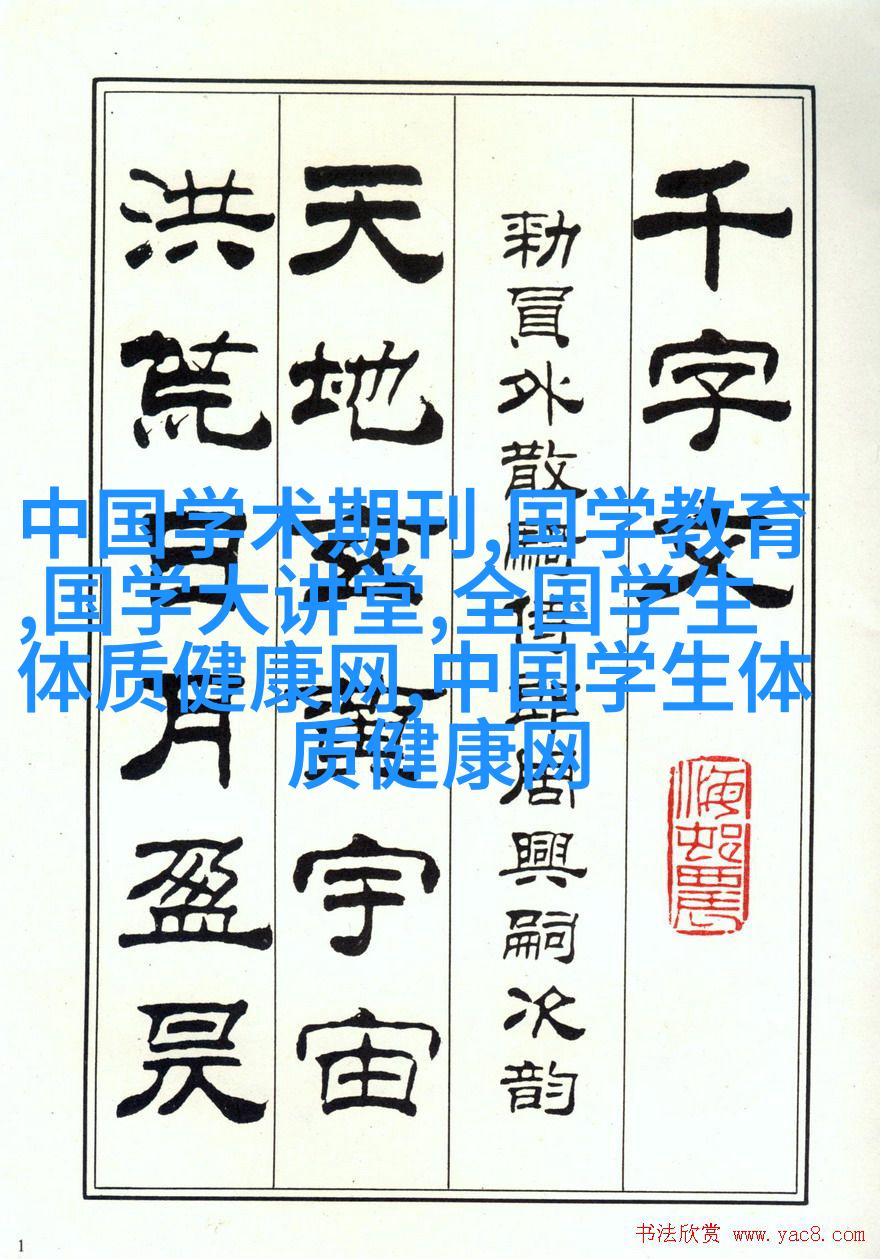 千字文
勑員外散騎侍郎周興嗣次韵
天地玄黃宇宙
洪荒日月盈昃
中国学术期刊,国学教育
,国学大讲堂,全国学生
体质健康网,中国学生体
质健康网
1
书法欣赏 www.yac8.com